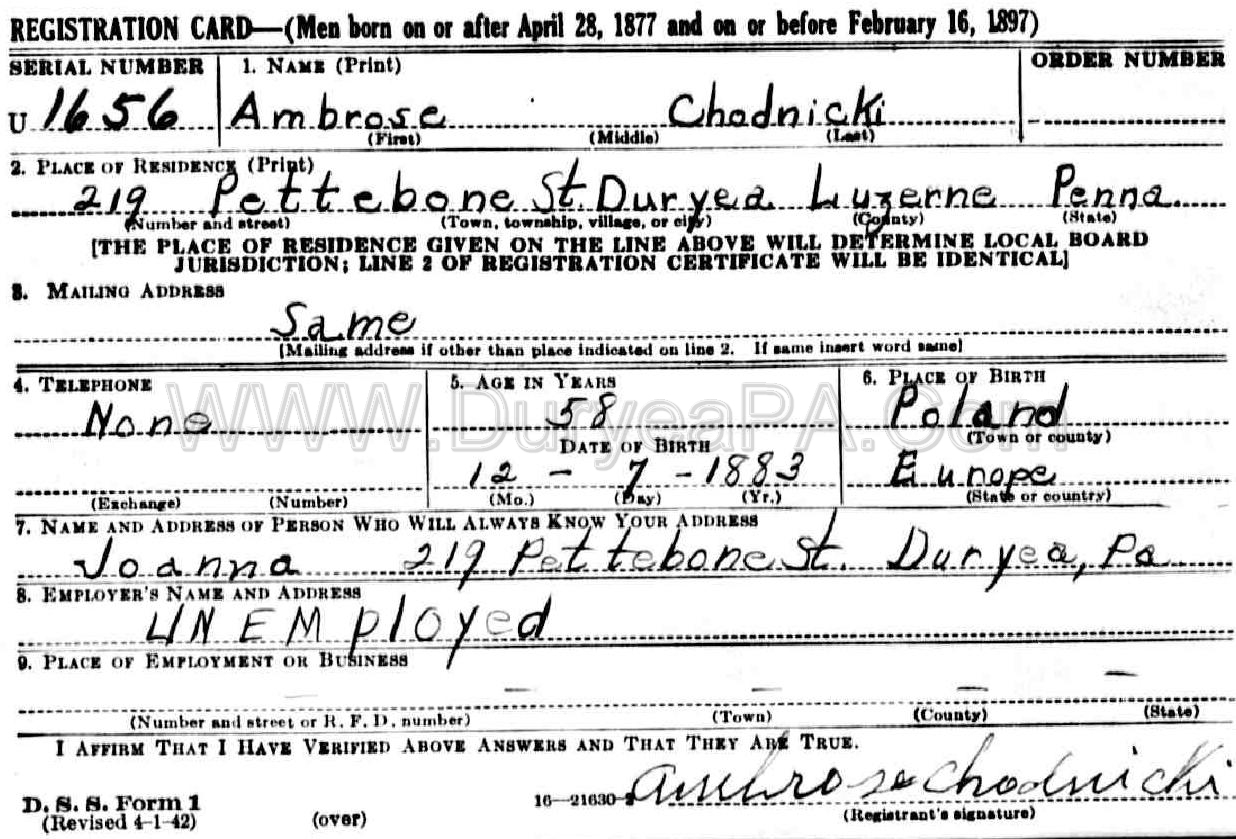 REGISTRATION CARD—(Men born on or after April 28, 1877 and on or before February 16, 1897)
SERIAL NUMBER 1. NAME (Print) ORDER NUMBER
U 1656 Ambrose Chodnicki
(First) (Middle) (Last)
2. PLACE OF RESIDENCE (Print)
219 Pettebone St. Duryea Luzerne Penna
(Number and street) (Town, township, village, or city) (County) (State)
[THE PLACE OF RESIDENCE GIVEN ON THE LINE ABOVE WILL DETERMINE LOCAL BOARD
JURISDICTION; LINE 2 OF REGISTRATION CERTIFICATE WILL BE IDENTICAL]
3. MAILING ADDRESS
Same
[Mailing address if other than place indicated on line 2. If same insert word same]
4. TELEPHONE 5. AGE IN YEARS 6. PLACE OF BIRTH
None 58 Poland
WWW.DuryeaPA.Com
DATE OF BIRTH (Town or county)
12 - 7 - 1883 Europe
(Exchange) (Number) (Mo.) (Day) (Yr.) (State or country)
7. NAME AND ADDRESS OF PERSON WHO WILL ALWAYS KNOW YOUR ADDRESS
Joanna 219 Pettebone St. Duryea, Pa
8. EMPLOYER'S NAME AND ADDRESS
UNEMployed
9. PLACE OF EMPLOYMENT OR BUSINESS
– – – – –
(Number and street or R. F. D. number) (Town) (County) (State)
I AFFIRM THAT I HAVE VERIFIED ABOVE ANSWERS AND THAT THEY ARE TRUE.
Ambrose Chodnicki
D. S. S. Form 1 16—21630-2
(Revised 4-1-42) (over) (Registrant's signature)